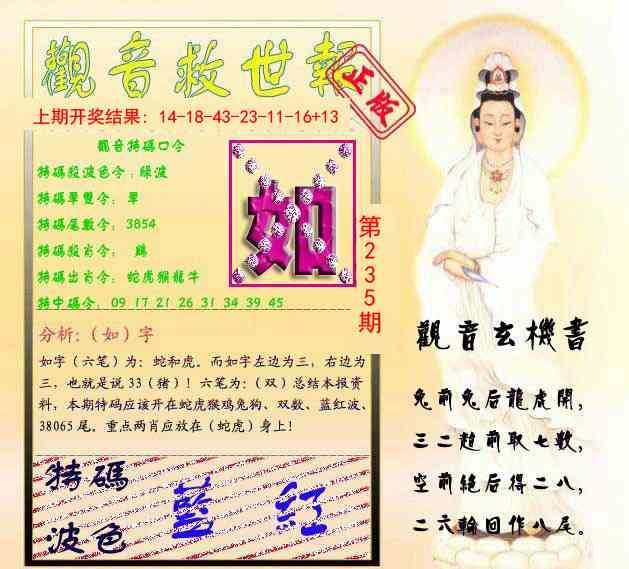 觀音救世報
正版
上期开奖结果：14-18-43-23-11-16+13
觀音特碼口令
特碼殺波色令：绿波
特碼單雙令：單
特碼尾數令：3854
特碼殺肖令： 鷄
特碼出肖令：蛇虎猴龍牛
特中碼令：09 17 21 26 31 34 39 45
如
第235期
分析:（如）字
如字（六笔）为：蛇和虎。而如字左边为三，右边为
三，也就是说 33（猪）！六笔为:（双）总结本报资
料，本期特码应该开在蛇虎猴鸡兔狗、双数、蓝红波、
38065 尾。重点两肖应放在（蛇虎）身上！
特碼
波色
藍 紅
觀音玄機書
兔前兔后龍虎開，
三二趕前取七數，
空前絕后得二八，
二六輪回作八尾。